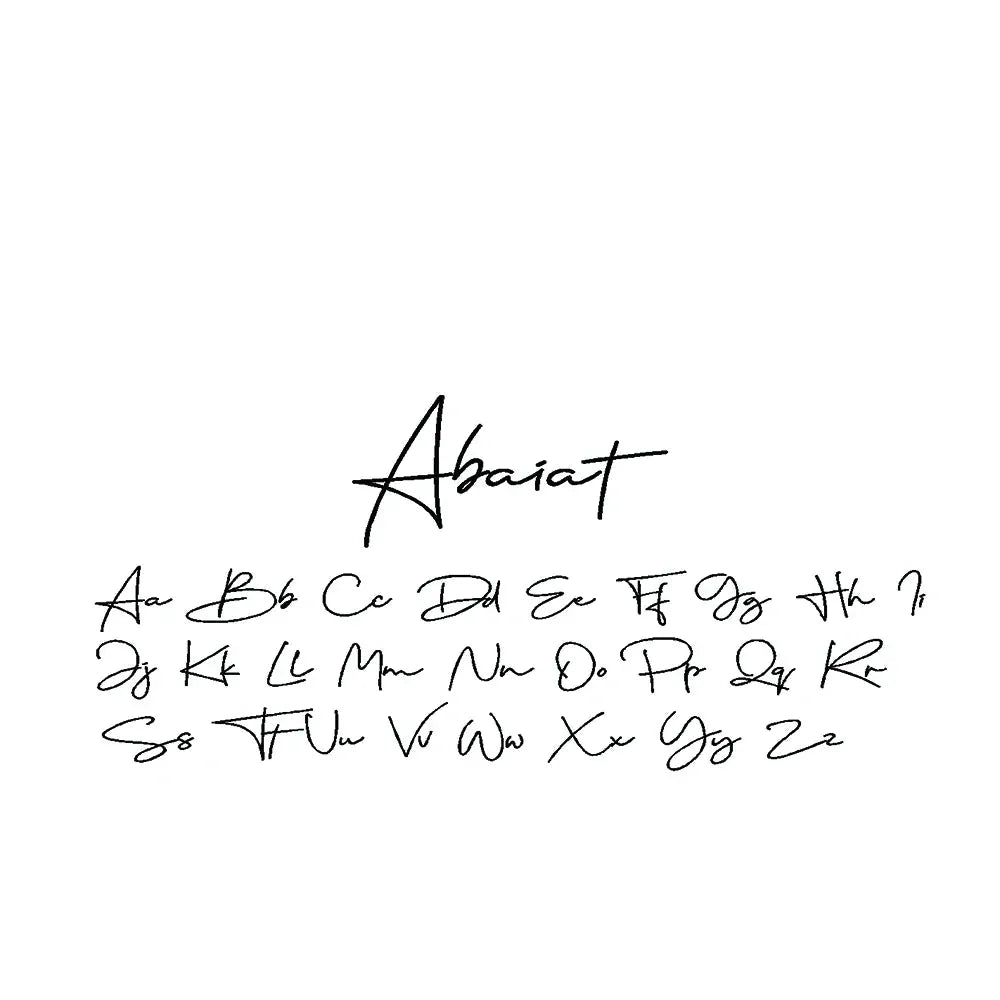 Abaiat
Aa Bb Cc Dd Ee Ff Gg Hh Ii
Jj Kk Ll Mm Nn Oo Pp Qq Rr
Ss Tt Uu Vv Ww Xx Yy Zz